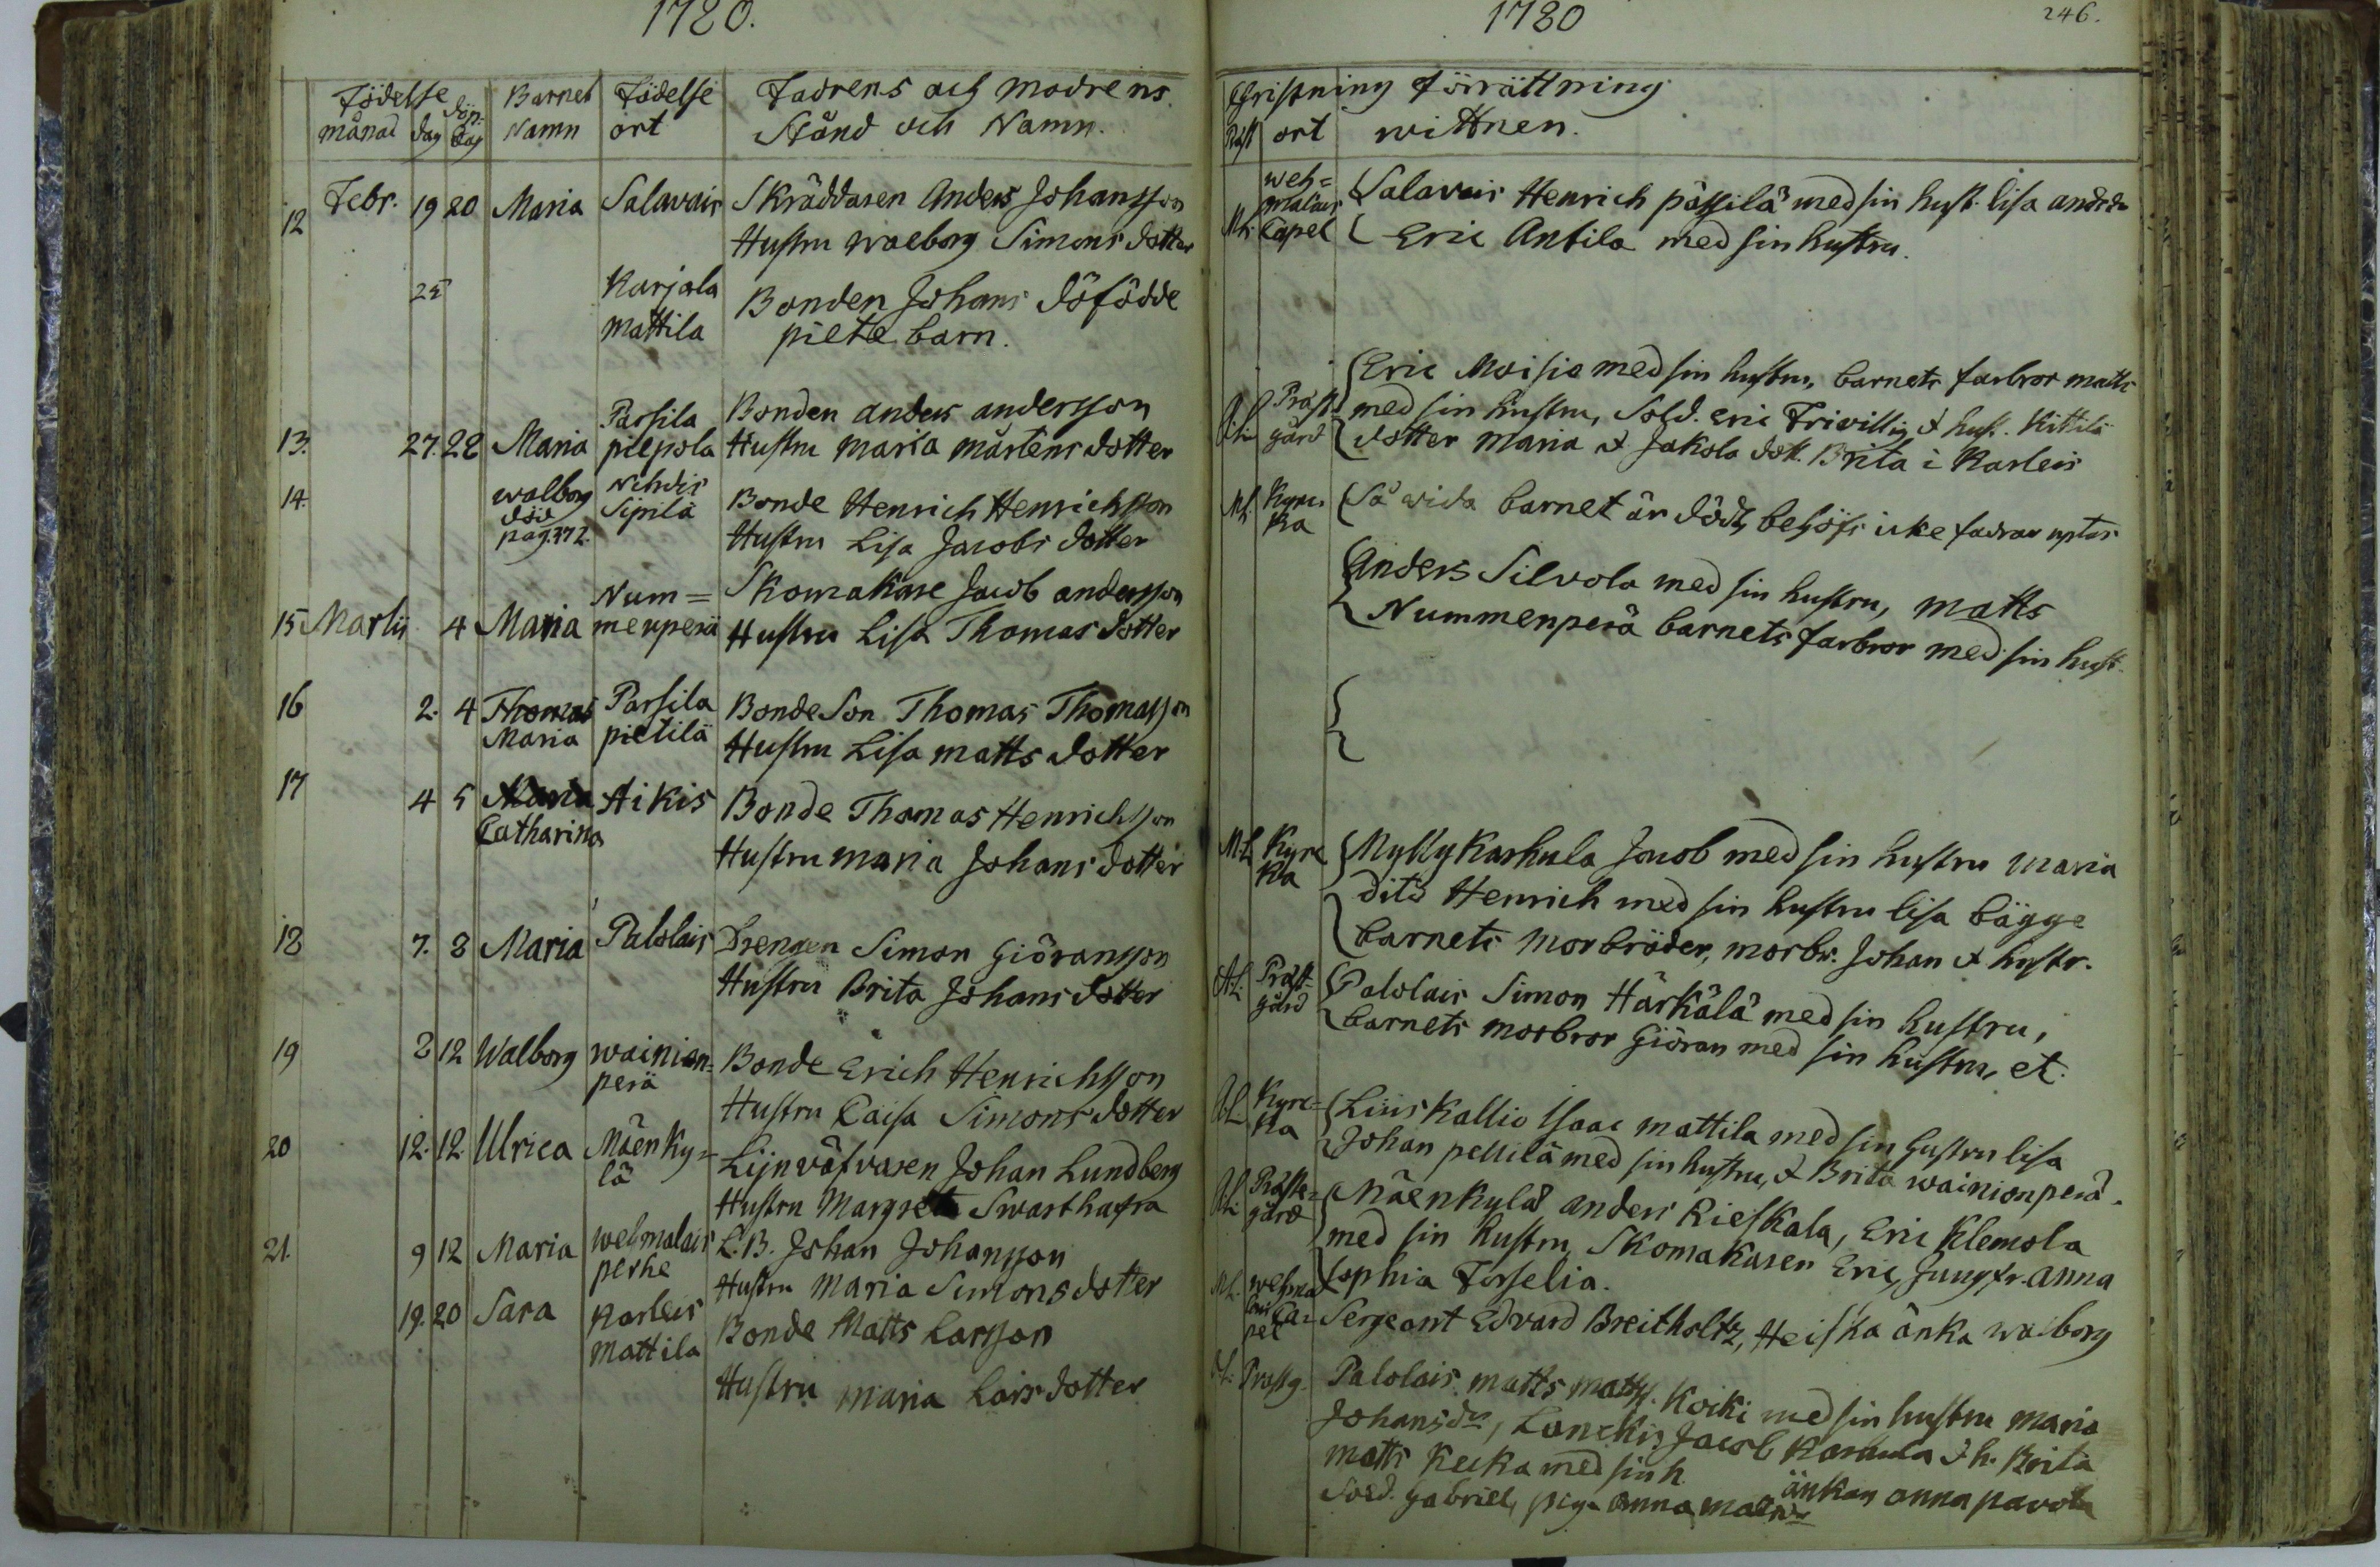 1780.
Födelse månad dag döp. dag Barnet Namn Födelse ort Fadrens och modrens Stånd och Namn.
12 Febr. 19 20 Maria Salavais Skräddaren Anders Johansson
Hustru Waeborg Simons dotter
25 Karjala Bonden Johans döfödde
mattila piete barn.
Parsila Bonden anders andersson
13. 27. 28 Maria piepola Hustru maria mårtens dotter
14. walborg Nihdis Bonde Henrich Henrichsson
död Sipilä
pag. 372. Hustru Lisa Jacobs dotter
Num= Skomakare Jacob andersson
15 Martii 4 Maria menperä Hustru Lisa Thomas dotter
16 2. 4 Thomas Parsila Bonde Son Thomas Thomasson
Maria pietilä Hustru Lisa matts dotter
17 4 5 Maria Hikis Bonde Thomas Henrichsson
Catharina Hustru maria Johans dotter
18 7. 8 Maria Palolais Drengen Simon Giöransson
Hustru Brita Johans dotter
19 8 12 Walborg wainion= Bonde Erich Henrichsson
perä Hustru Caisa Simons dotter
20 12. 12. Ulrica Mäenky= Lijnväfvaren Johan Lundberg
lä Hustru Margreta Swarthafra
21. 9 12 Maria wehmalais L. B. Johan Johansson
perhe Hustru Maria Simons dotter
19. 20 Sara Karleis Bonde Matts Larsson
mattila Hustru maria Lars dotter
1780
246.
Christning Förrättning
Präst ort wittnen.
weh=
malais Salavais Henrich pässilä med sin hust. lisa
M. L. Capel Eric Antila med sin hustru.
Eric Moisio med sin hustru, barnets farbror matts
Präst= med sin hustru, Sold. Eric Frivillig & hust. Kittilä
gård dotter maria & Jakola dott. Brita i Karleis
M. L. Kyrc Så wida barnet är dödt, behöfs icke fadrar uptas
ka
Anders Silvola med sin hustru, matts
Nummenperä barnets farbror med sin hust.
M. L. Kyrc Mylly Karhula Jacob med sin hustru maria
ka dito Henrich med sin hustru lisa bägge
barnets morbröder, morbr. Johan & hustr.
A. L. Präst= Palolais Simon Härkälä med sin hustru,
gård barnets morbror Giöran med sin hustru, et.
A. L. Kyrc= Liuskallio Isaac mattila med sin hustru lisa
ka Johan pellilä med sin hustru, & Brita wainionperä.
A. L. Präste= Mäenkylä anders Rieskala, Eric Klemola
gård med sin hustru Skomakaren Eric, Jungfr. Anna
M. L. wehma Sophia Forselia.
lais Ca= Sergeant Edvard Breitholtz, Heiska änka walborg
pel
Prästg. Palolais matts matss. Kocki med sin hustru maria
Johansdr, Lanckis Jacob Karhula & h. Brita
matts Kecka med sin h. änkan anna pavola
Sold. Gabriel, pig. Anna